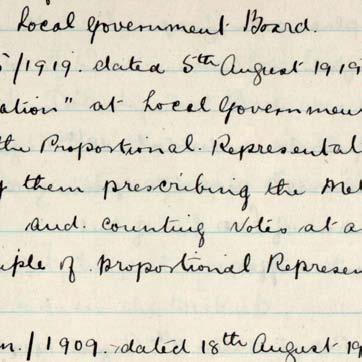 Local Government Board.
5/1919. dated 5th August 1919
ation" at Local Government
the Proportional Representat
y them prescribing the Met
and counting Votes at a
iple of Proportional Represen
n./1909. dated 18th August 19